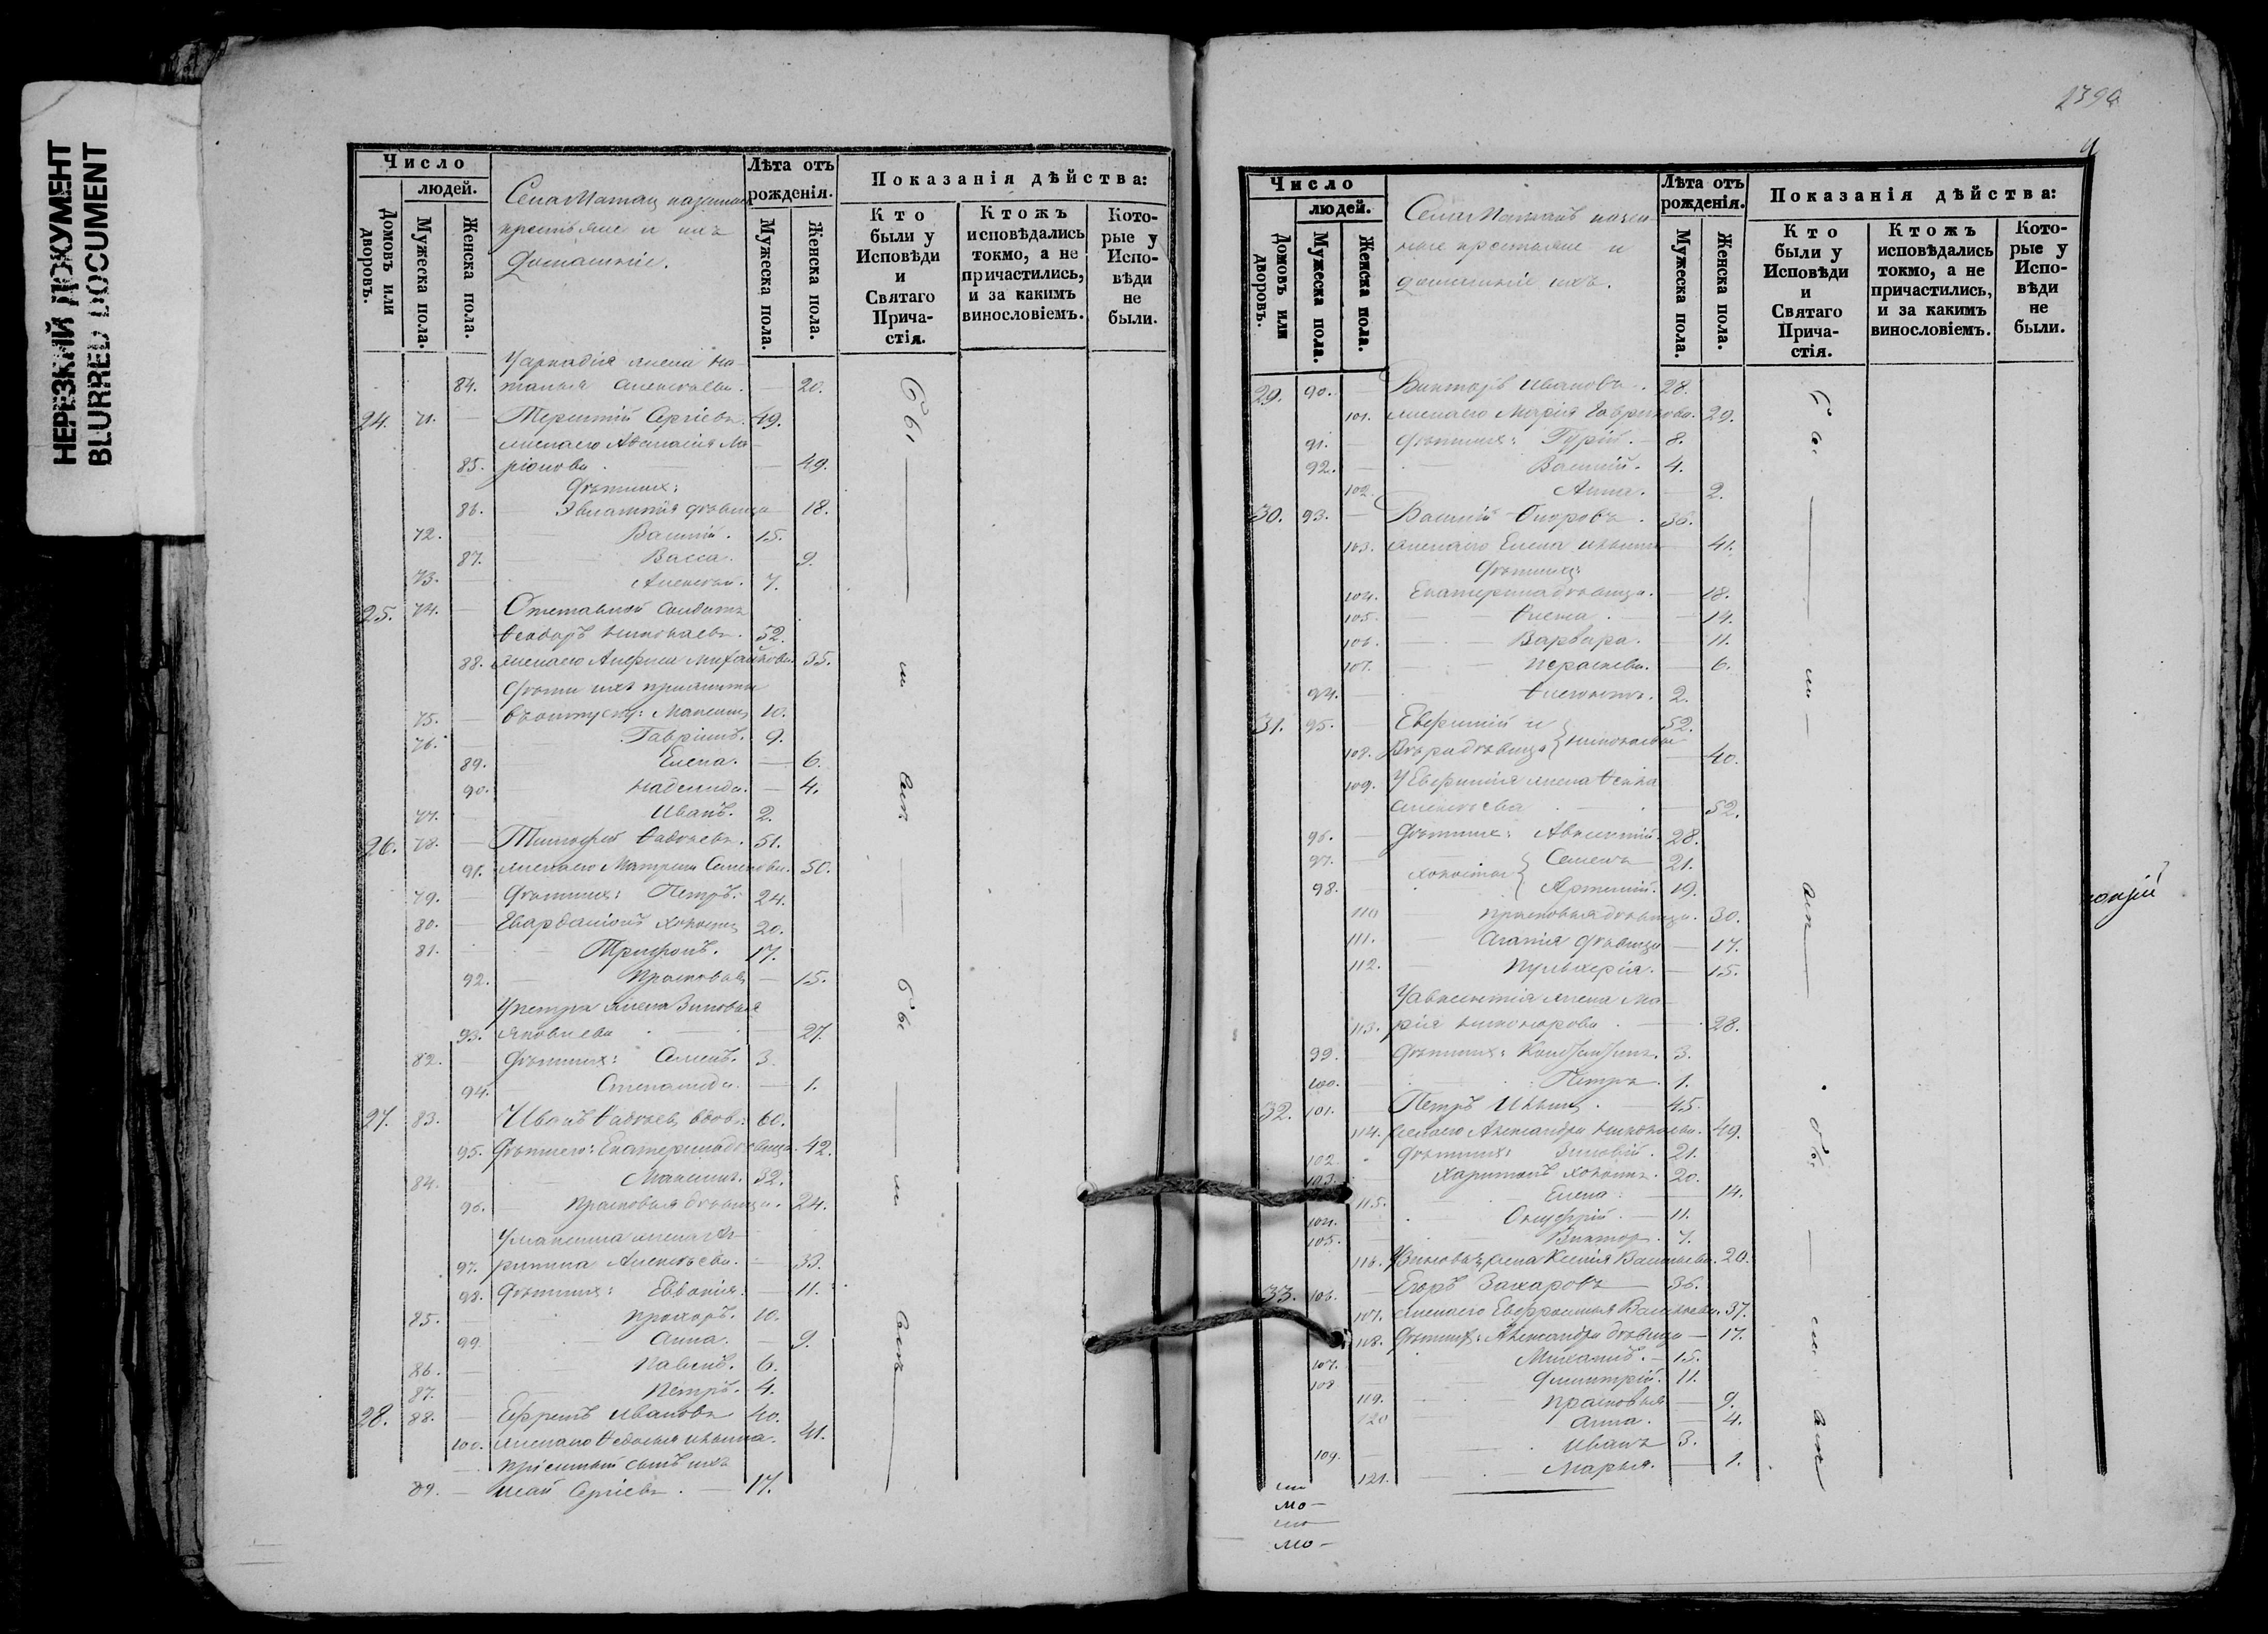 НЕРЕЗКИЙ ДОКУМЕНТ
BLURRED DOCUMENT
Число
людей.
Домовъ или дворовъ.
Мужеска пола.
Женска пола.
крестьяне и ихъ
домашніе.
Лѣта отъ рожденія.
Мужеска пола.
Женска пола.
Показанія дѣйства:
Кто были у Исповѣди и Святаго Причастія.
Ктожъ исповѣдались токмо, а не причастились, и за какимъ винословіемъ.
Которые у Исповѣди не были.
У Аркадія жена На-
84. талья Алексѣева. — 20.
24. 71. — Терентій Сергіевъ. 49.
жена его Аѳанасія Ла-
85. ріонова. — 49.
Дѣти ихъ:
86. — Евлампія дѣвица 18.
72. — Василій. 15.
87. — Васса. 9.
73. — Алексѣй. 7.
25. 74. — Отставной солдатъ
Ѳеодоръ Николаевъ. 52.
88. жена его Анфиса Михайлова. 35.
Дѣти ихъ прижиты
75. — въ отпуску: Максимъ 10.
76. — Гавріилъ. 9.
89. — Елена. — 6.
90. — Надежда. — 4.
77. — Иванъ. 2.
26. 78. — Тимофей Ѳадѣевъ. 51.
91. жена его Матрена Семенова. 50.
79. — Дѣти ихъ: Петръ. 24.
80. — Евдокимъ холостъ 20.
81. — Трифонъ. 17.
92. — Прасковья — 15.
У Петра жена Зиновья
93. Яковлева — 27.
82. — Дѣти ихъ: Семенъ. 3.
94. Степанида. — 1.
27. 83. — Иванъ Ѳадѣевъ вдовъ. 60.
95. Дѣти его: Екатерина дѣвица. 42.
84. — Максимъ. 32.
96. — Прасковья дѣвица. 24.
У Максима жена Ек-
97. Алексѣева. — 33.
98. Дѣти ихъ: Евдокія. — 11.
85. — Прохоръ. 10.
99. — Анна. — 9.
86. — Павелъ. 6.
87. — Петръ. 4.
28. 88. — Ефремъ Ивановъ 40.
100. жена его Ѳедосья Ильина. 41.
Пріемный сынъ ихъ
89. — Сергіевъ. — 17.
239а
Число
людей.
Домовъ или дворовъ.
Мужеска пола.
Женска пола.
ные крестьяне и
домашніе ихъ.
Лѣта отъ рожденія.
Мужеска пола.
Женска пола.
Показанія дѣйства:
Кто были у Исповѣди и Святаго Причастія.
Ктожъ исповѣдались токмо, а не причастились, и за какимъ винословіемъ.
Которые у Исповѣди не были.
29. 90. — Викторъ Ивановъ. 28.
101. жена его Марія Гаврилова. 29.
91. — Дѣти ихъ: Гурій. — 8.
92. — Василій. 4.
102. Анна. — 2.
30. 93. — Василій Ѳедоровъ. 36.
103. жена его Елена Ильина — 41.
Дѣти ихъ:
104. Екатерина дѣвица. — 18.
105. — Елена. — 14.
106. — Варвара. — 11.
107. — Параскева. — 6.
94. — 2.
31. 95. — Евфимій и 52.
108. Вѣра дѣвица } Николаевы — 40.
109. У Евфимія жена Ѳекла
Алексѣева — 52.
96. — Дѣти ихъ: Авксентій. 28.
97. — холосты { Семенъ 21.
98. Артемій. 19.
110 Прасковья дѣвица. 30.
111. — Агапія дѣвица — 17.
112. — Пульхерія. — 15.
У Авксентія жена Ма-
113. рія Никанорова. — 28.
99. Дѣти ихъ: Константинъ. 3.
100. Петръ. 1.
32. 101. Петръ Ильинъ. — 45.
114. жена его Александра Николаева. 49.
102. Дѣти ихъ: Зиновій. 21.
103. Харитонъ холостъ. 20.
115. Елена. — 14.
104. Онуфрій. — 11.
105. Викторъ. 7.
116. У Зиновья жена Ксенія Васильева. 20.
33. 106. — Егоръ Захаровъ — 36.
107. жена его Евфросинья Васильева. 37.
108. Дѣти ихъ: Александра дѣвица — 17.
107. Михаилъ. — 15.
108 Димитрій. 11.
119. Прасковья — 9.
120 Анна. — 4.
109. — Иванъ 3.
121. — Марья. — 1.